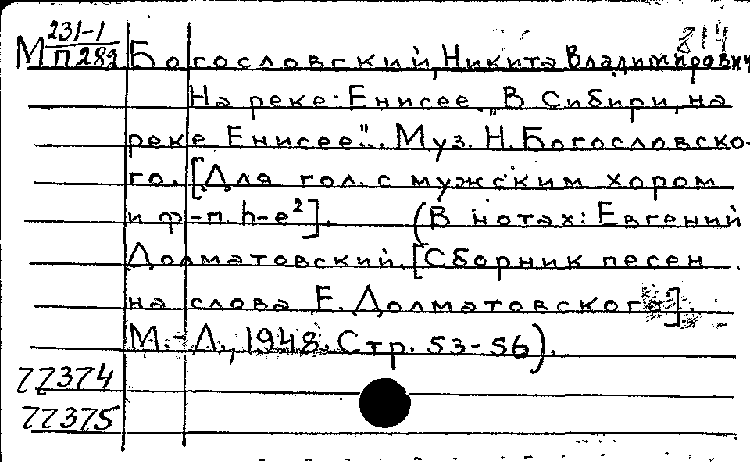 814
М 231-1
П 289
Богословский, Никита Владимирович
На реке Енисее. „В Сибири, на
реке Енисее". Муз. Н. Богословско-
го. [Для гол. с мужским хором
и ф-п. h-e²]. (В нотах: Евгений
Долматовский. [Сборник песен
на слова Е. Долматовского].
М.-Л., 1948. Стр. 53-56).
22374
22375